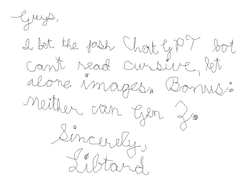 Guys,
I bet the fash ChatGPT bot
can't read cursive, let
alone images. Bonus:
neither can Gen Z.
Sincerely,
Libtard